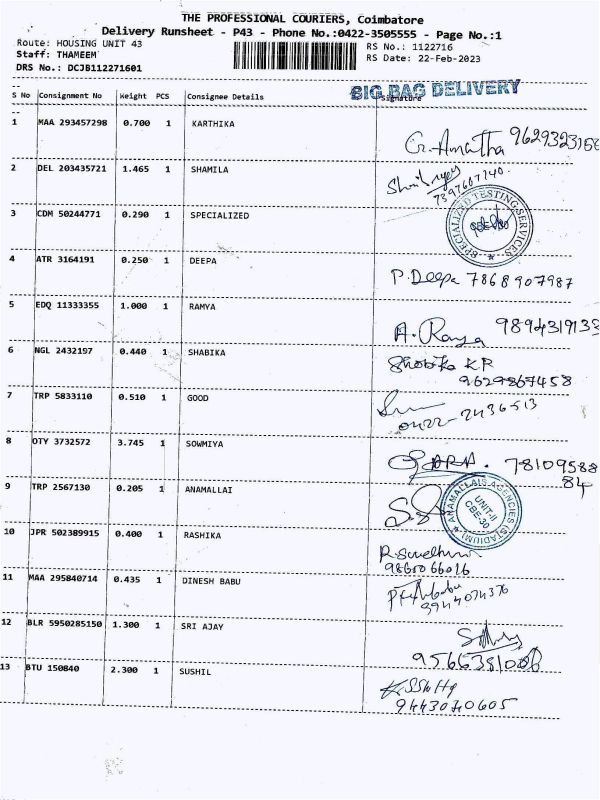 THE PROFESSIONAL COURIERS, Coimbatore
Delivery Runsheet - P43 - Phone No.:0422-3505555 - Page No.:1
Route: HOUSING UNIT 43
RS No.: 1122716
Staff: THAMEEM
RS Date: 22-Feb-2023
DRS No.: DCJB112271601
BIG BAG DELIVERY
S No Consignment No Weight PCS Consignee Details Signature
1 MAA 293457298 0.700 1 KARTHIKA
2 DEL 203435721 1.465 1 SHAMILA
7397607140
3 CDM 50244771 0.290 1 SPECIALIZED
SPECIALIZED TESTING SERVICES
4 ATR 3164191 0.250 1 DEEPA
P. Deepa 7868907987
5 EDQ 11333355 1.000 1 RAMYA
6 NGL 2432197 0.440 1 SHABIKA
9629867458
7 TRP 5833110 0.510 1 GOOD
0422-2436513
8 OTY 3732572 3.745 1 SOWMIYA
78109588
84
9 TRP 2567130 0.205 1 ANAMALLAI
ANAMALLAIS AGENCIES (STADIUM)
UNIT-II
CBE-30
10 JPR 502389915 0.400 1 RASHIKA
11 MAA 295840714 0.435 1 DINESH BABU
12 BLR 5950285150 1.300 1 SRI AJAY
13 BTU 150840 2.300 1 SUSHIL
9443040605